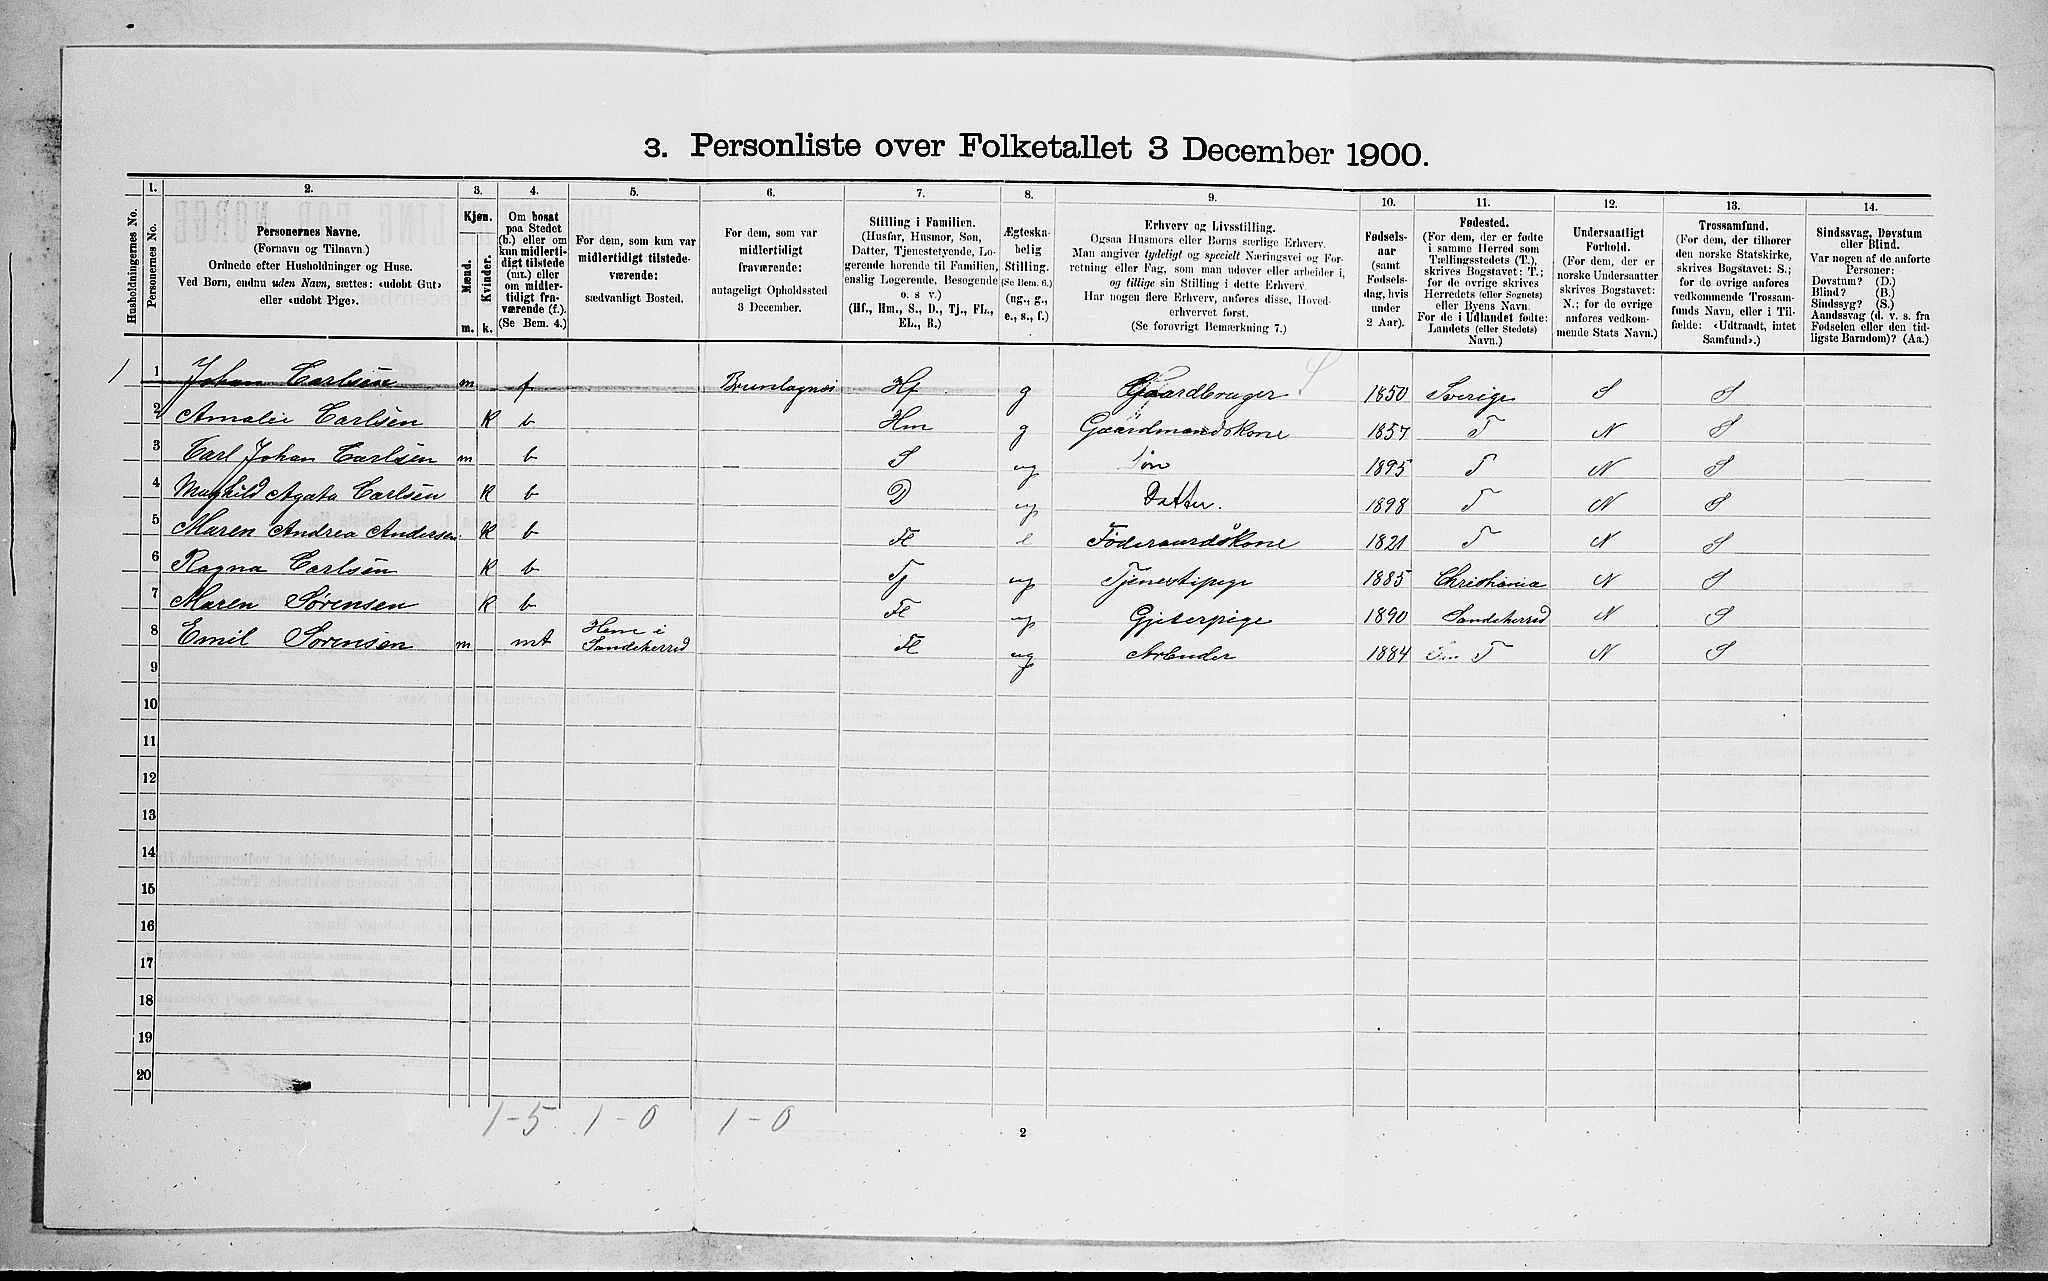 3. Personliste over Folketallet 3 December 1900.
1. 2. 3. 4. 5. 6. 7. 8. 9. 10. 11. 12. 13. 14.
Husholdningernes No.
Personernes No.
Personernes Navne.
(Fornavn og Tilnavn.)
Ordnede efter Husholdninger og Huse.
Ved Børn, endnu uden Navn, sættes: «udøbt Gut»
eller «udøbt Pige».
Kjøn.
Mænd.
Kvinder.
m. k.
Om bosat
paa Stedet
(b.) eller om
kun midlerti-
digt tilstede
(mt.) eller
om midler-
tidigt fra-
værende (f.).
(Se Bem. 4.)
For dem, som kun var
midlertidigt tilstede-
værende:
sædvanligt Bosted.
For dem, som var
midlertidigt
fraværende:
antageligt Opholdssted
3 December.
Stilling i Familien.
(Husfar, Husmor, Søn,
Datter, Tjenestetyende, Lo-
gerende hørende til Familien,
enslig Logerende, Besøgende
o. s v.)
(Hf., Hm., S., D., Tj., FL.,
EL., B.)
Ægteska-
belig
Stilling.
(Se Bem. 6.)
(ug., g.,
e., s., f.)
Erhverv og Livsstilling.
Ogsaa Husmors eller Børns særlige Erhverv.
Man angiver tydeligt og specielt Næringsvei og For-
retning eller Fag, som man udøver eller arbeider i,
og tillige sin Stilling i dette Erhverv.
Har nogen flere Erhverv, anføres disse, Hoved-
erhvervet først.
(Se forøvrigt Bemærkning 7.)
Fødsels-
aar
(samt
Fødsels-
dag, hvis
under
2 Aar).
Fødested.
(For dem, der er fødte
i samme Herred som
Tællingsstedets (T.),
skrives Bogstavet: T.;
for de øvrige skrives
Herredets (eller Sognets)
eller Byens Navn.
For de i Udlandet fødte:
Landets (eller Stedets)
Navn.)
Undersaatligt
Forhold.
(For dem, der er
norske Undersaatter
skrives Bogstavet:
N.; for de øvrige
anføres vedkom-
mende Stats Navn.)
Trossamfund.
(For dem, der tilhører
den norske Statskirke,
skrives Bogstavet: S.;
for de øvrige anføres
vedkommende Trossam-
funds Navn, eller i Til-
fælde: «Udtraadt, intet
Samfund».)
Sindssvag, Døvstum
eller Blind.
Var nogen af de anførte
Personer:
Døvstum? (D.)
Blind? (B.)
Sindssyg? (S.)
Aandssvag (d. v. s. fra
Fødselen eller den tid-
ligste Barndom)? (Aa.)
1 1 Johan Carlsen m f Brunlagnæs Hf g Gaardbruger S 1850 Sverige S S
2 Amalie Carlsen k b Hm g Gaardmandskone 1857 T N S
3 Carl Johan Carlsen m b S ug Søn 1895 T N S
4 Maghild Agata Carlsen k b D ug Datter. 1898 T N S
5 Maren Andrea Andersen k b Fl e Föderaadskone 1821 T N S
6 Ragna Carlsen k b Tj ug Tjenestipige 1885 Christiania N S
7 Maren Sørensen k b Fl ug Gjeterpige 1890 Sandeherred N S
8 Emil Sørensen m mt Hem i Sandeherred Fl ug Arbeider 1884 T N S
9
10
11
12
13
14
15
16
17
18
19
20
1-5 1-0 1-0
2